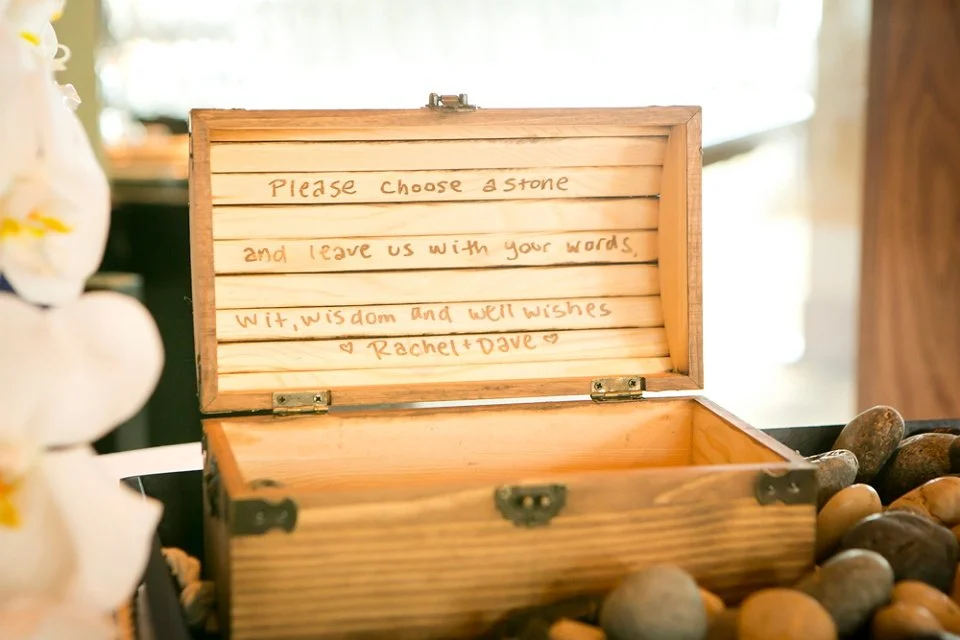 Please choose a stone
and leave us with your words,
wit, wisdom and well wishes
♡ Rachel + Dave ♡